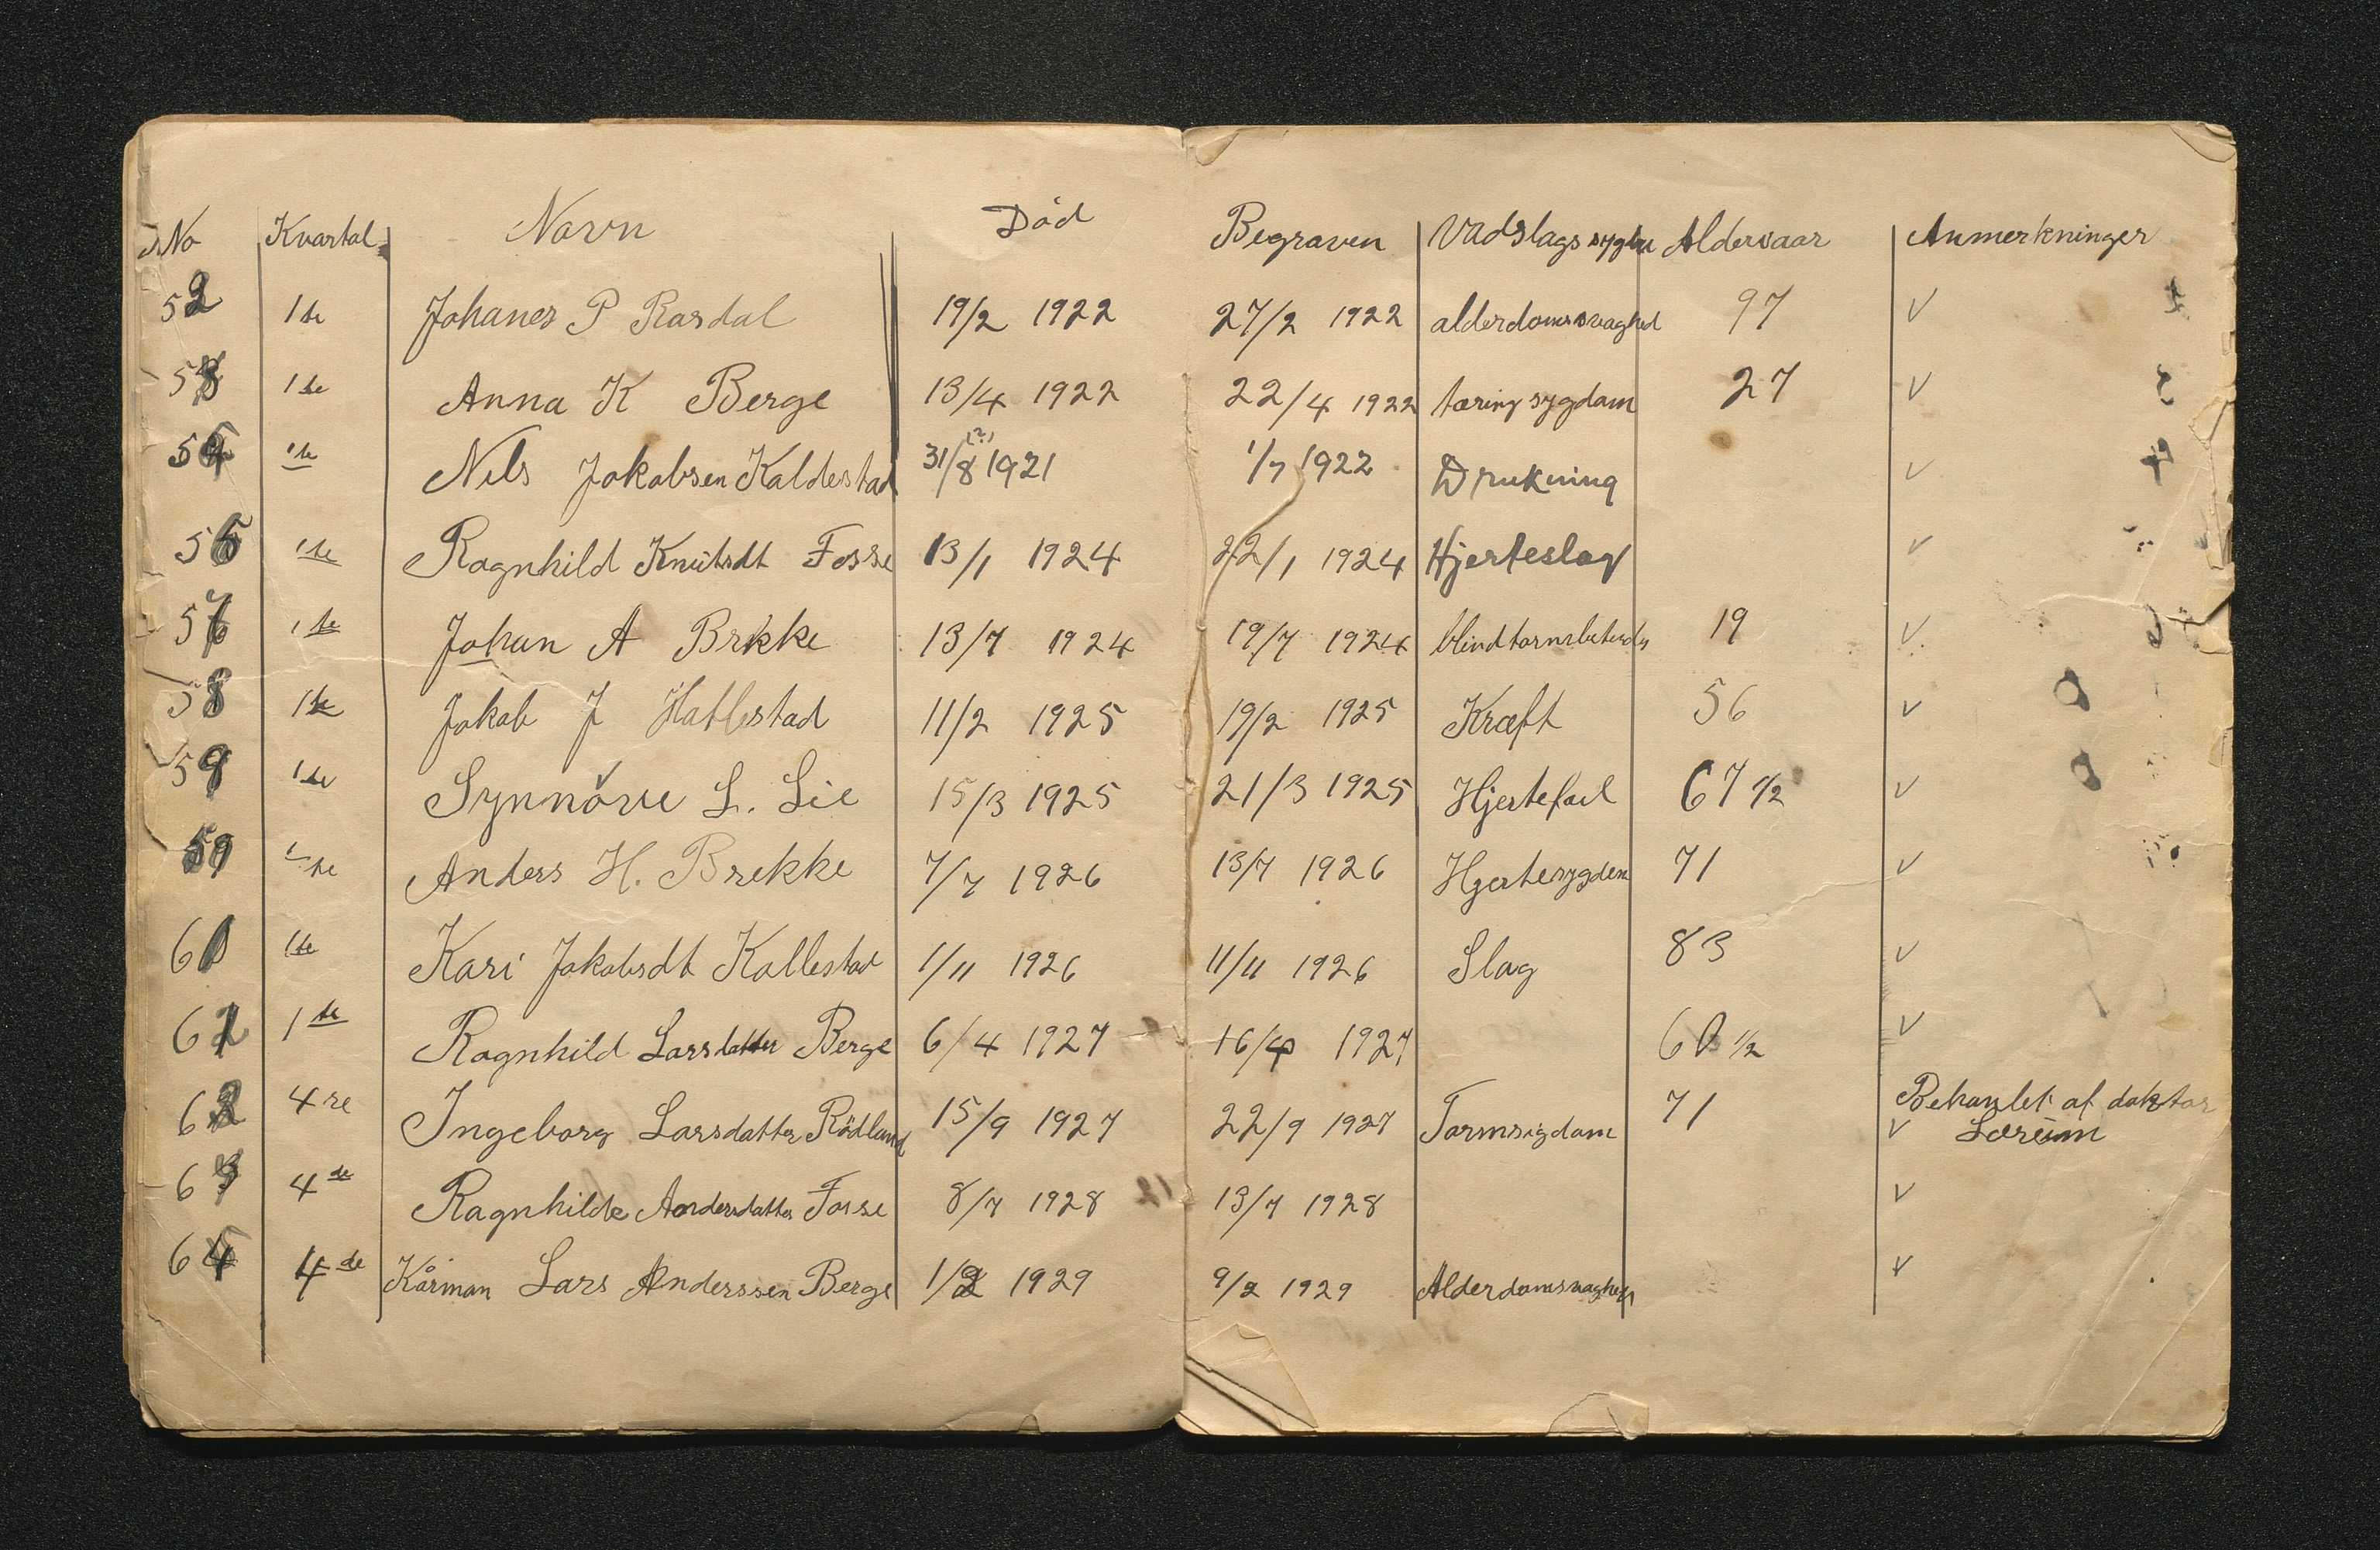 No Kvartal Navn Död Begraven Vadslags sygdu Aldersaar Anmerkninger
52 1te Johanes P Rasdal 19/2 1922 27/2 1922 alderdomssvaghed 97 v
53 1te Anna K Berge 13/4 1922 22/4 1922 tæring sygdam 27 v
54 1te Nils Jakobsen Kaldestad 31/8 (?) 1921 1/7 1922 Drukning v
56 1te Ragnhild Knutsdt Fosse 13/1 1924 22/1 1924 Hjerteslag v
57 1te Johan A Brekke 13/7 1924 19/7 1924 19 v
58 1te Jakob J Hatlestad 11/2 1925 19/2 1925 Kræft 56 v
59 1te Synnöve L. Lie 15/3 1925 21/3 1925 Hjertefeil 67 1/2 v
59 1te Anders H. Brekke 7/7 1926 13/7 1926 Hjertesygdom 71 v
60 1te Kari Jakobsdt Kallestad 1/11 1926 11/11 1926 Slag 83 v
61 1te Ragnhild Larsdatter Berge 6/4 1927 16/4 1927 60 1/2 v
62 4re Ingeborg Larsdatter Rödland 15/9 1927 22/9 1927 Tarmsigdam 71 Behanlet af doktor
v Lærum
63 4de Ragnhilde Andersdatter Fosse 8/7 1928 13/7 1928 v
64 4de Kårman Lars Anderssen Berge 1/2 1929 9/2 1929 Alderdomsvaghed v